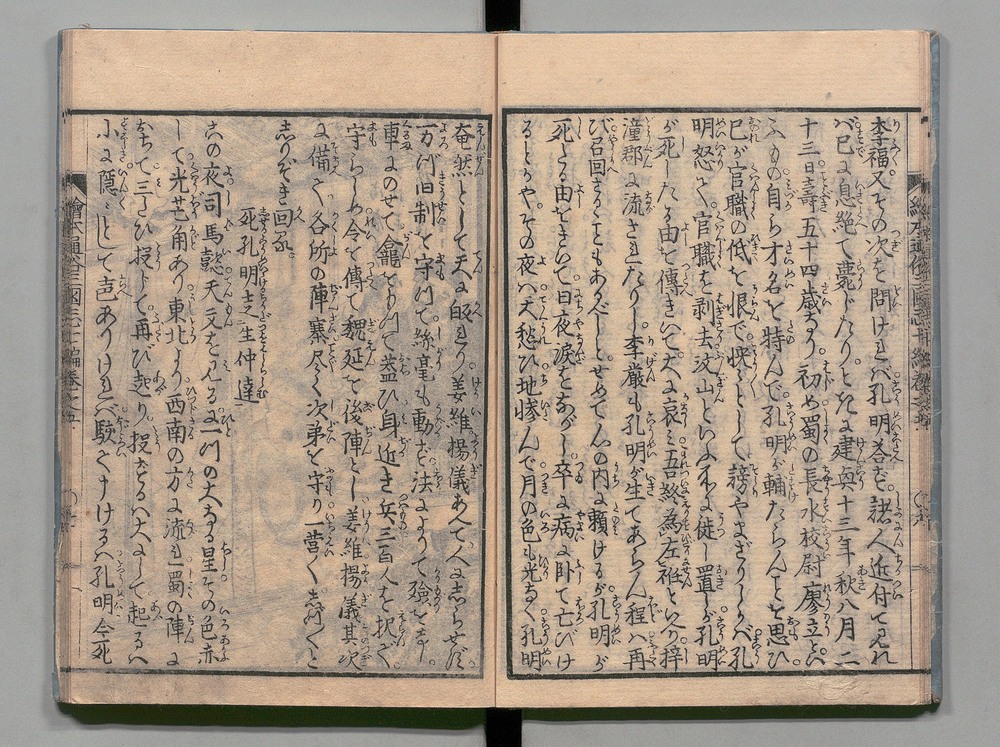 李福又その次を問けれバ孔明答ず諸人近付て見れ
バ已に息絶て薨じたりときに建興十三年秋八月二
十三日壽五十四歳なり初め蜀の長水校尉廖立とい
ふもの自ら才名を特んで孔明が輔たらんことを思ひ
己が官職の低を恨で怏々として謗やまざりしかバ孔
明怒て官職を剥去汶山といふ所に徙し置しが孔明
が死したる由を傳きいて大に哀ミ吾終為左袵といへり梓
潼郡に流されたりし李厳も孔明が生てあらん程ハ再
び召回さるることもあるべしとせめて心の内に頼けるが孔明が
死したる由をきいて日夜涙をながし卒に病に臥て亡びけ
るとかやその夜ハ天愁ひ地惨んで月の色も光なく孔明
奄然として天に皈せり姜維揚儀あへて人にしらせず
一力に旧制を守りて絲毫も動ず法によりて殮をなし
車にのせて龕をもつて蓋ひ身近き兵三百人を択で
守らしめ令を傳て魏延を後陣とし姜維揚儀其次
に備へて各所の陣寨尽く次第を守り一營々々しづしづと
しりぞき回る
死孔明走生仲達
この夜司馬懿天文をみるに一つの大なる星その色赤
して光芒角あり東北より西南の方に流れ蜀の陣に
おちて三たび投じて再び起り投ずるハ大にして起るハ
小に隠々として声ありけれバ駭ていひけるハ孔明今死
繪本通俗三國志七編巻之五